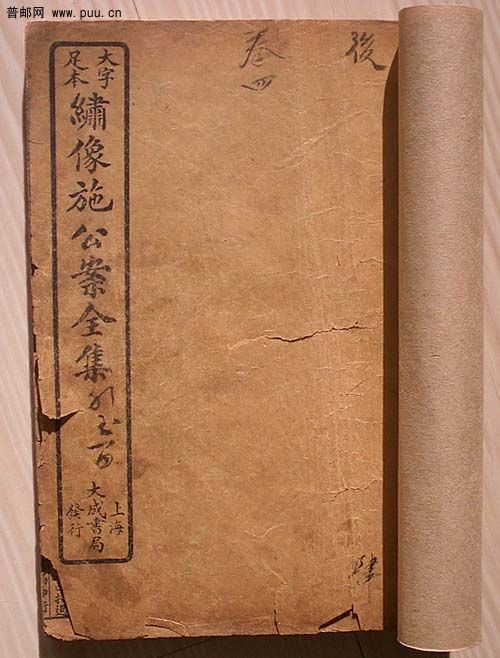 普邮网 www.puu.cn
後
卷四
大字
足本
繡像施公案全集
上海
大成書局
發行
肆